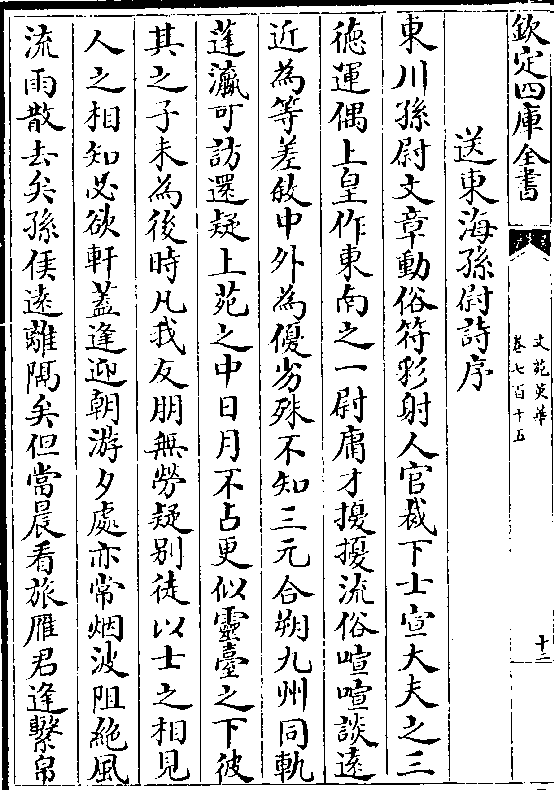 欽定四庫全書
文苑英華
卷七百十五
十二
送東海孫尉詩序
東川孫尉文章動俗符彩射人官裁下士宣大夫之三
徳運偶上皇作東南之一尉庸才擾擾流俗喧喧談遠
近為等差敘中外為優劣殊不知三元合朔九州同軌
蓬瀛可訪還疑上苑之中日月不占更似靈臺之下彼
其之子未為後時凡我友朋無勞疑别徒以士之相見
人之相知必欲軒蓋逢迎朝游夕處亦常烟波阻絶風
流雨散去矣孫侯遠離隔矣但當晨看旅雁君逢繫帛